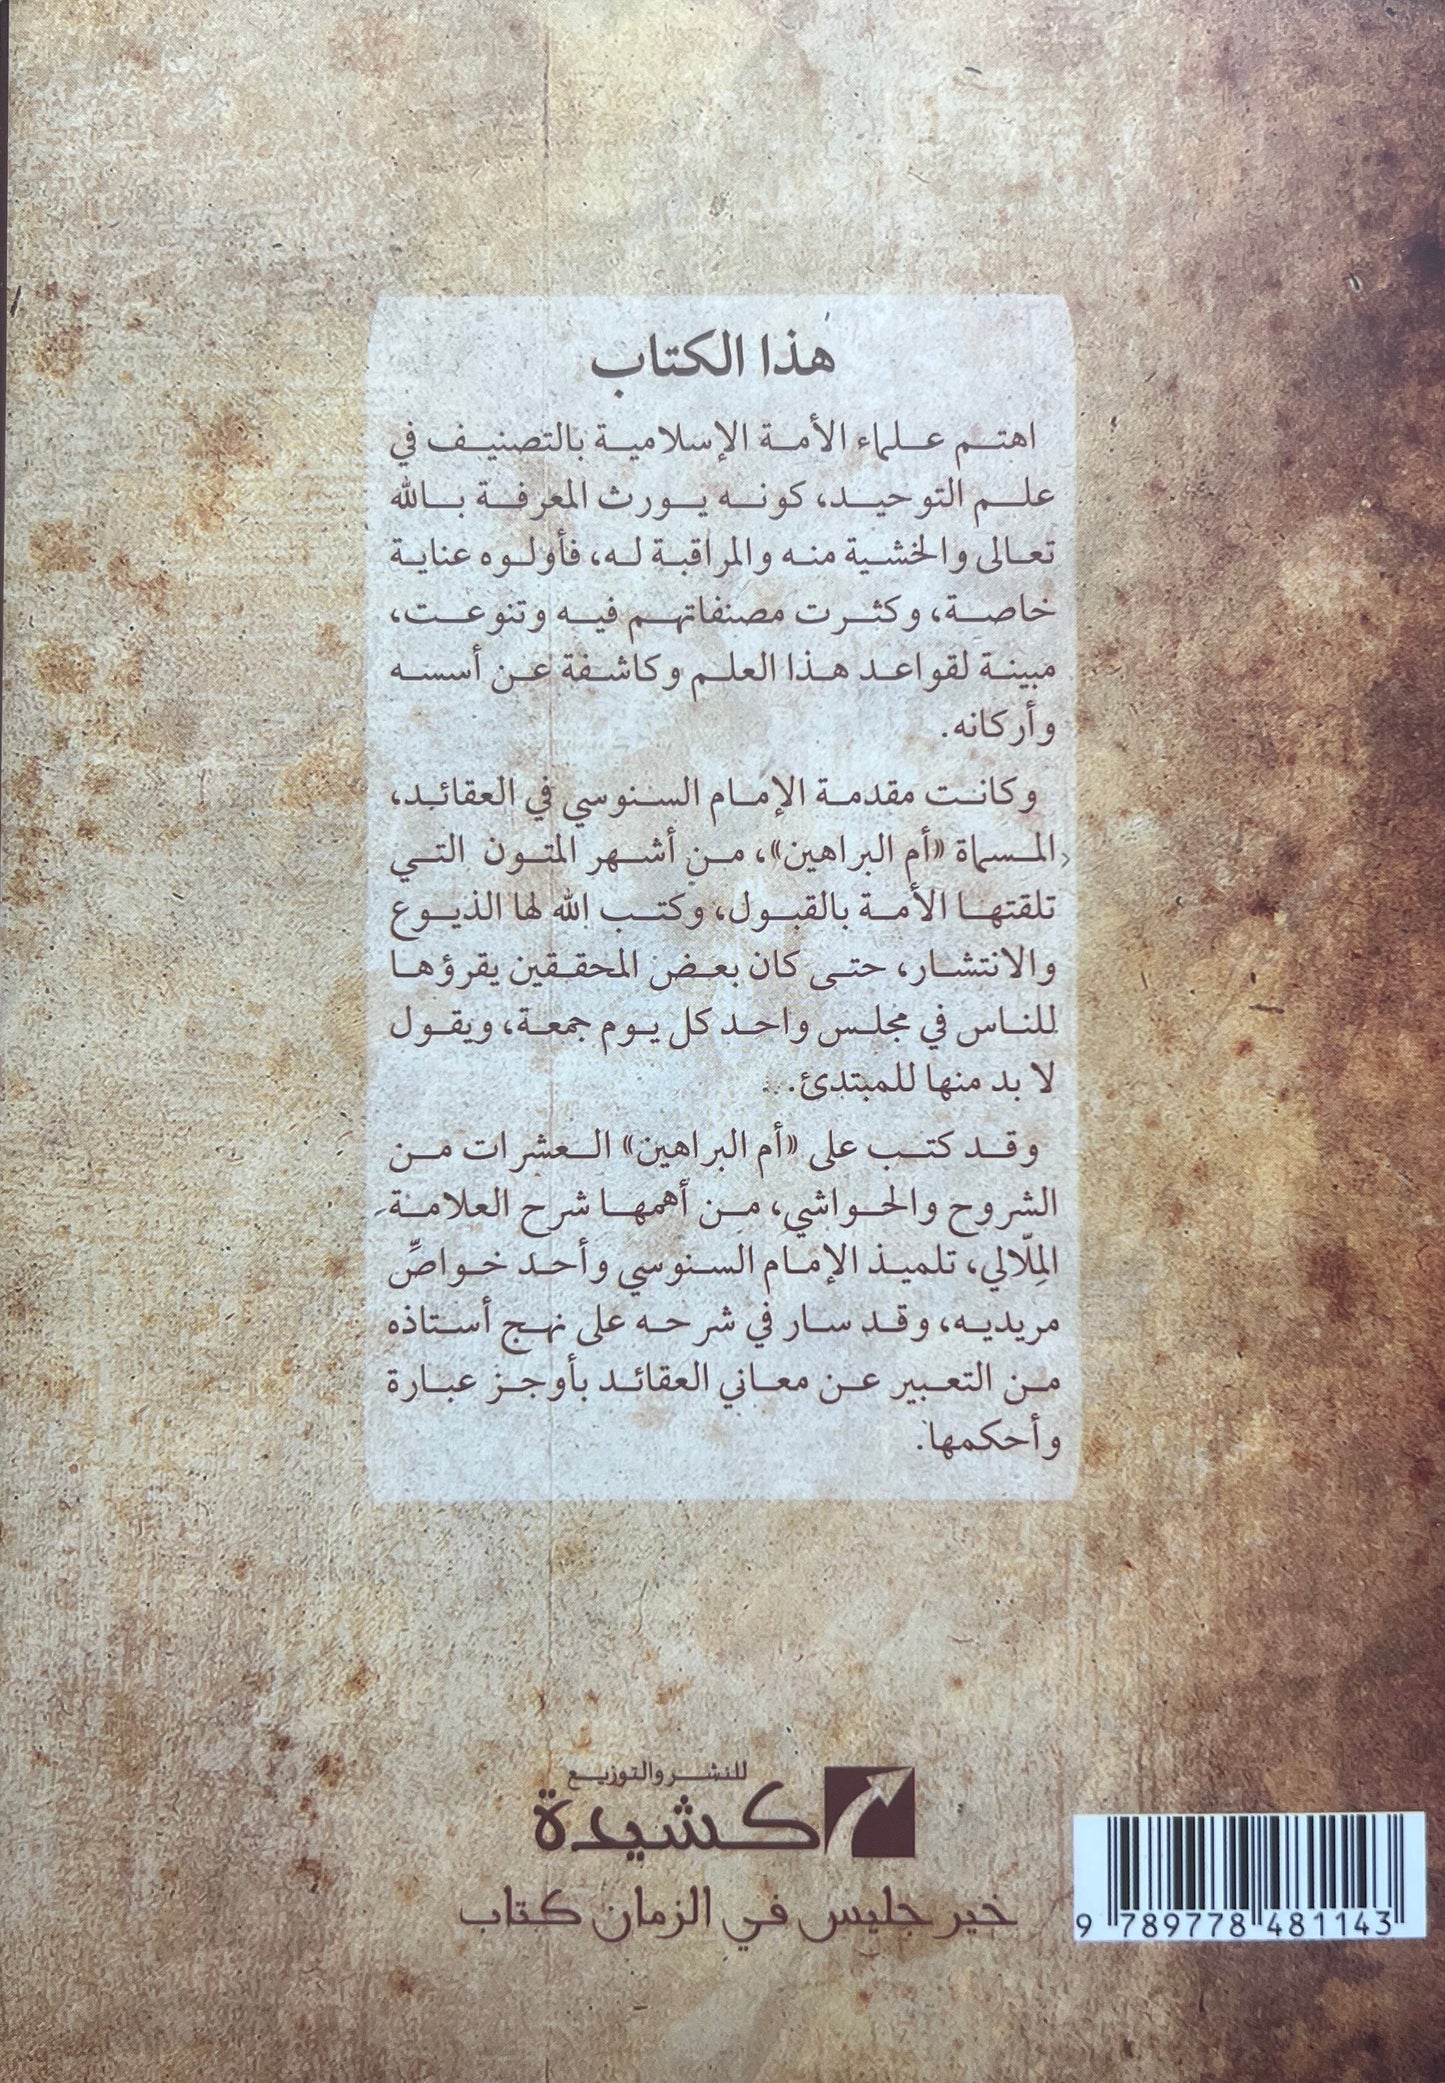 هذا الكتاب
اهتم علماء الأمة الإسلامية بالتصنيف في
علم التوحيد، كونه يورث المعرفة بالله
تعالى والخشية منه والمراقبة له، فأولوه عناية
خاصة، وكثرت مصنفاتهم فيه وتنوعت،
مبينة لقواعد هذا العلم وكاشفة عن أسسه
وأركانه.
وكانت مقدمة الإمام السنوسي في العقائد،
المسماة «أم البراهين»، من أشهر المتون التي
تلقتها الأمة بالقبول، وكتب الله لها الذيوع
والانتشار، حتى كان بعض المحققين يقرؤها
للناس في مجلس واحد كل يوم جمعة، ويقول
لا بد منها للمبتدئ.
وقد كتب على «أم البراهين» العشرات من
الشروح والحواشي، من أهمها شرح العلامة
المِلّالي، تلميذ الإمام السنوسي وأحد خواصِّ
مريديه، وقد سار في شرحه على نهج أستاذه
من التعبير عن معاني العقائد بأوجز عبارة
وأحكمها.
للنشر والتوزيع
كشيدة
خير جليس في الزمان كتاب
9 789778 481143